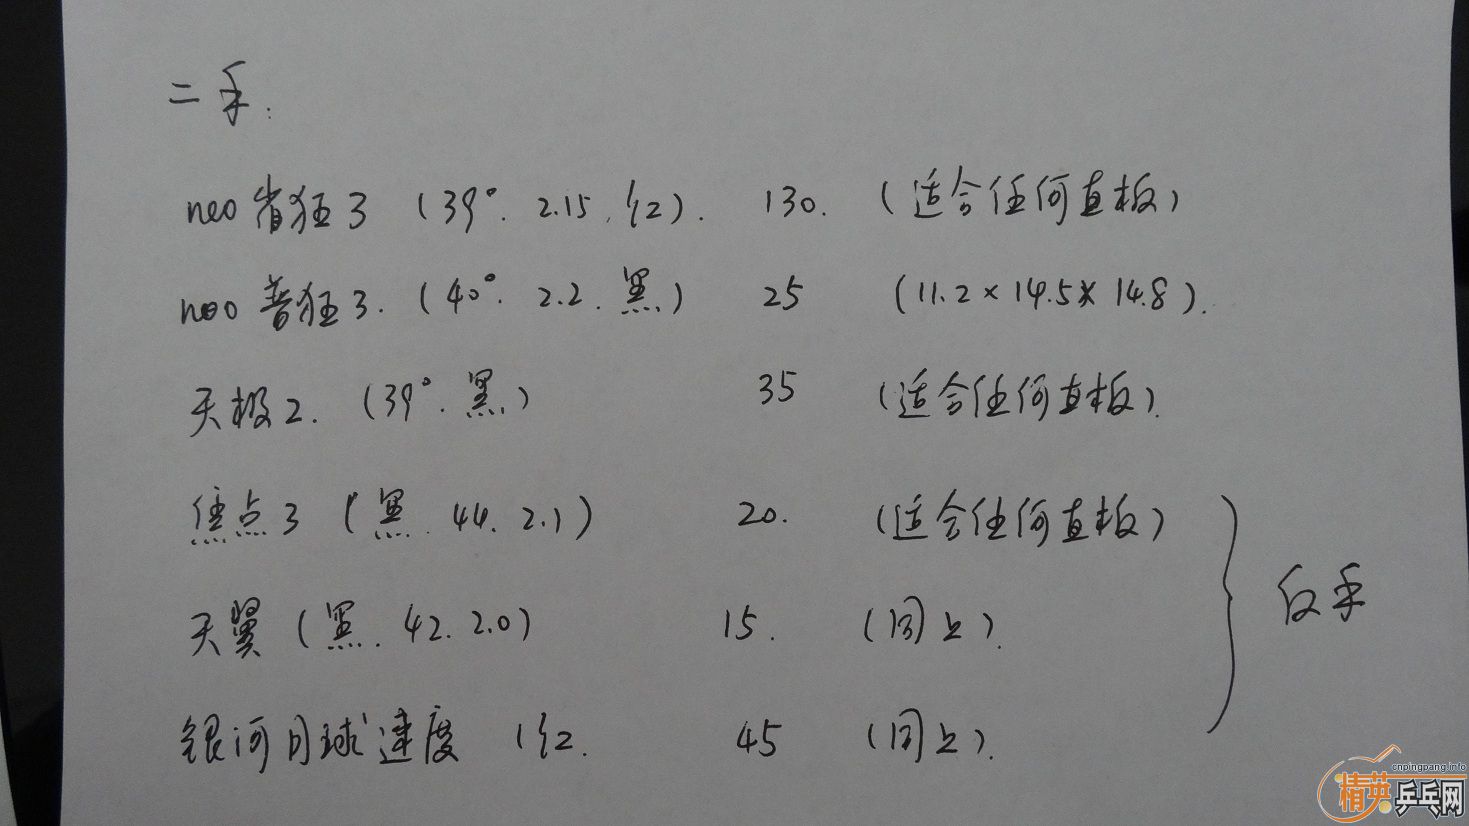 二手:
neo省狂3 (39°. 2.15. 红). 130. (适合任何直板)
neo 普狂3. (40°. 2.2. 黑) 25 (11.2×14.5×14.8).
天极2. (39°. 黑) 35 (适合任何直板).
焦点3 (黑. 44. 2.1) 20. (适合任何直板)
天翼 (黑. 42. 2.0) 15. (同上).
反手
银河月球速度 (红. 45 (同上).
cnpingpang.info
精英乒乓网